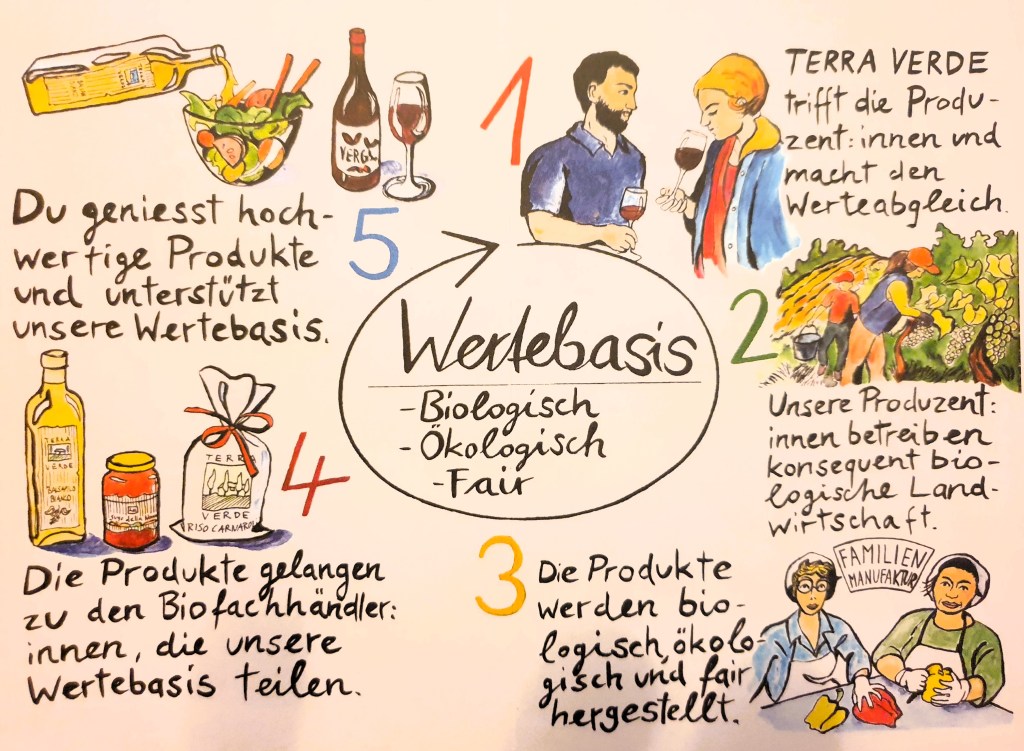 Wertebasis
- Biologisch
- Ökologisch
- Fair
1
TERRA VERDE
trifft die Produ-
zent:innen und
macht den
Werteabgleich.
2
Unsere Produzent:
innen betreiben
konsequent bio-
logische Land-
wirtschaft.
3
Die Produkte
werden bio-
logisch, ökolo-
gisch und fair
hergestellt.
FAMILIEN
MANUFAKTUR
4
TERRA
VERDE
BIANCO
TERRA
VERDE
RISO CARNAROLI
Die Produkte gelangen
zu den Biofachhändler:
innen, die unsere
Wertebasis teilen.
5
Du geniesst hoch-
wertige Produkte
und unterstützt
unsere Wertebasis.